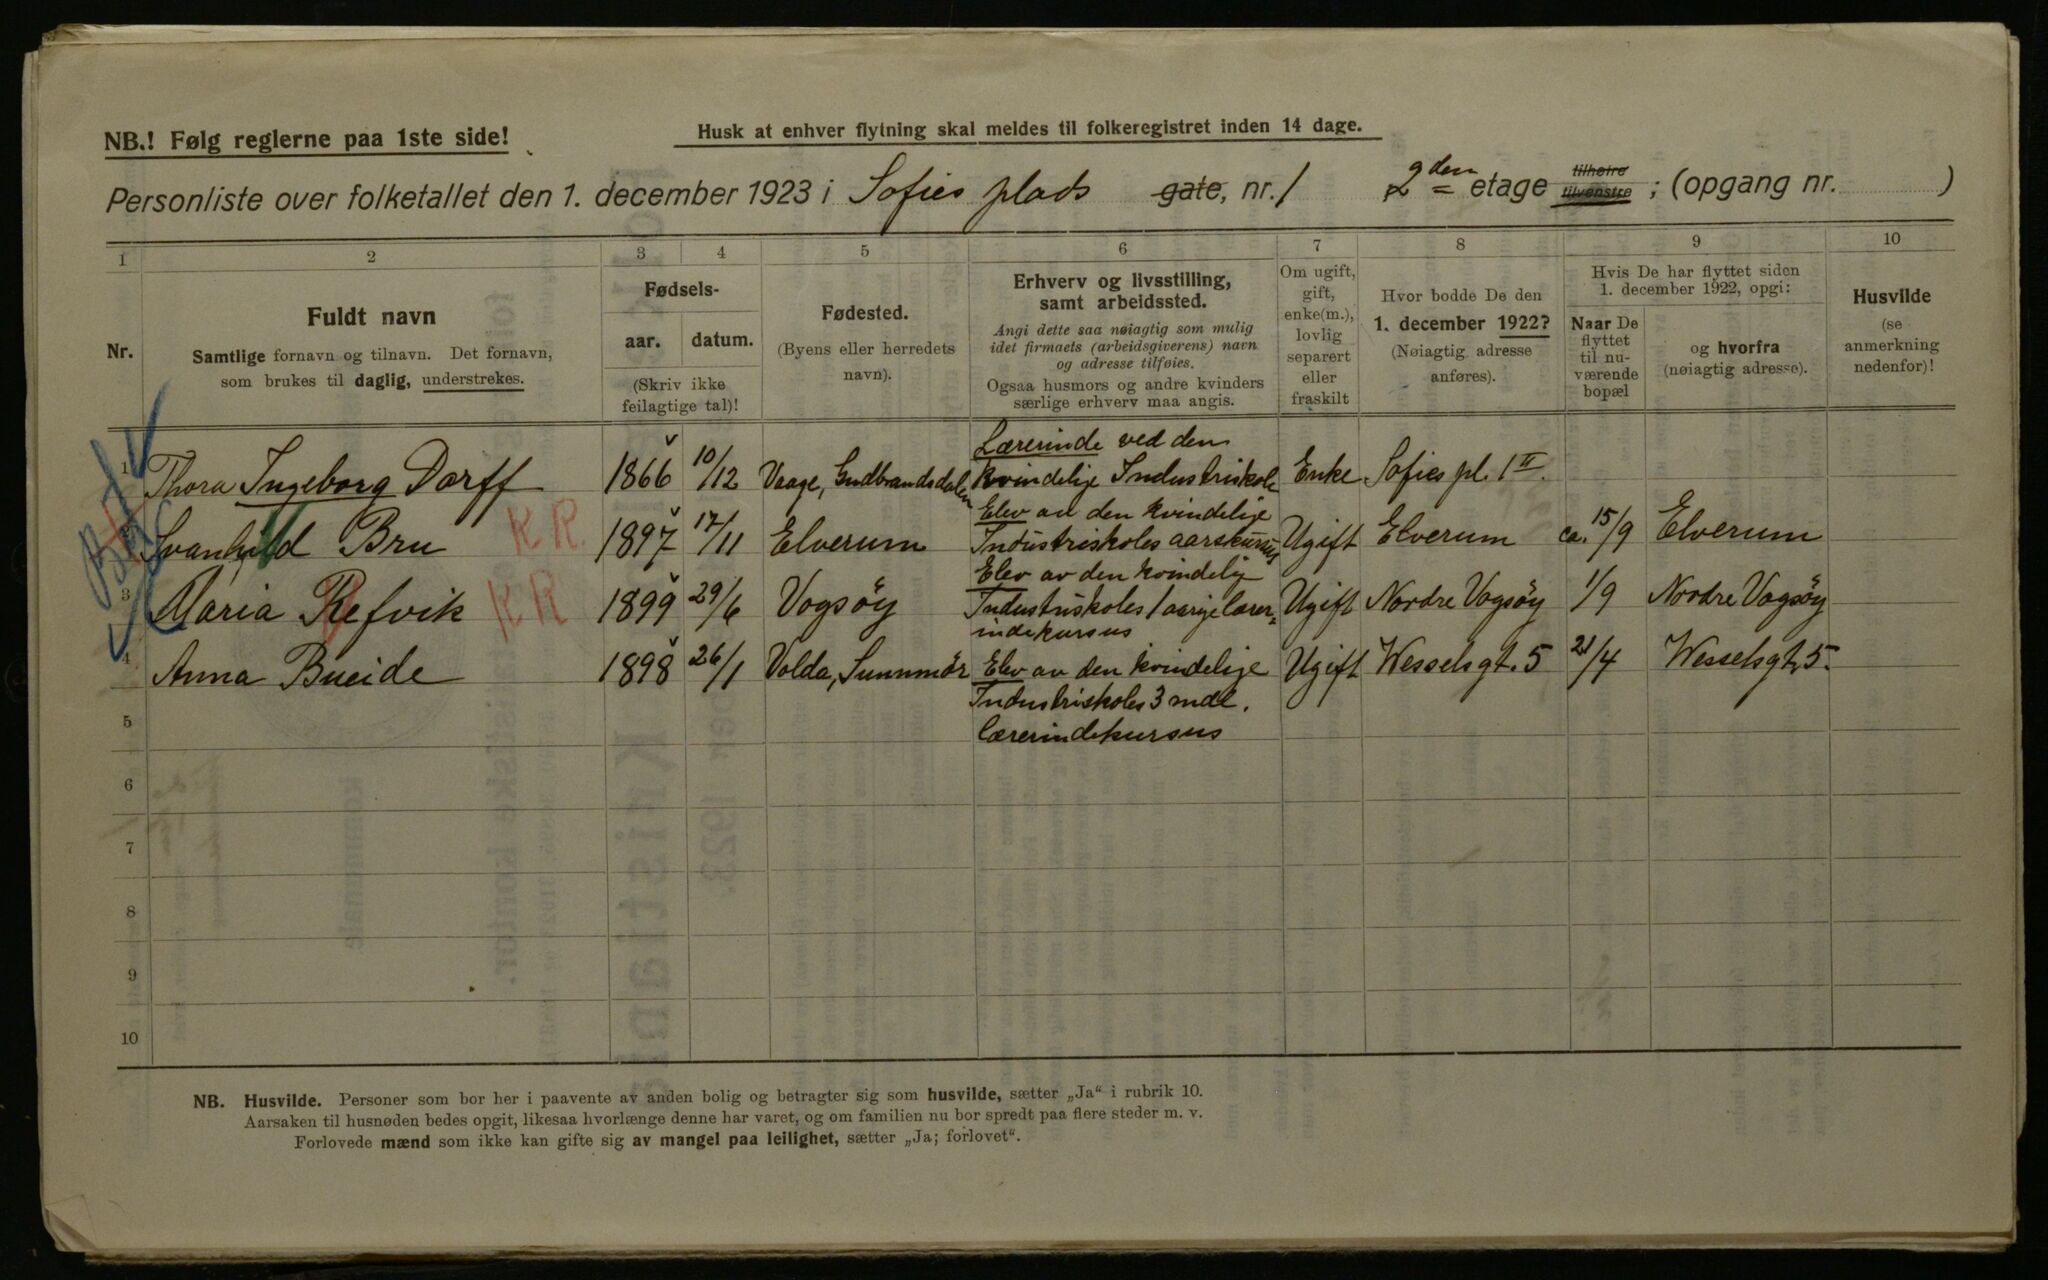 NB.! Følg reglerne paa 1ste side!
Husk at enhver flytning skal meldes til folkeregistret inden 14 dage.
Personliste over folketallet den 1. december 1923 i Sofies plads gate, nr. 1 2den etage tilhøire tilvenstre ; (opgang nr. )
1 2 3 4 5 6 7 8 9 10
Nr.
Fuldt navn
Samtlige fornavn og tilnavn. Det fornavn,
som brukes til daglig, understrekes.
Fødsels-
aar. datum.
(Skriv ikke
feilagtige tal)!
Fødested.
(Byens eller herredets
navn).
Erhverv og livsstilling,
samt arbeidssted.
Angi dette saa nøiagtig som mulig
idet firmaets (arbeidsgiverens) navn
og adresse tilføies.
Ogsaa husmors og andre kvinders
særlige erhverv maa angis.
Om ugift,
gift,
enke(m.),
lovlig
separert
eller
fraskilt
Hvor bodde De den
1. december 1922?
(Nøiagtig adresse
anføres).
Hvis De har flyttet siden
1. december 1922, opgi:
Naar De
flyttet
til nu-
værende
bopæl
og hvorfra
(nøiagtig adresse).
Husvilde
(se
anmerkning
nedenfor)!
1 Thora Ingeborg Dorff 1866 10/12 Vaage, Gudbrandsdalen Lærerinde ved den
kvindelige Industriskole Enke Sofies pl. 1 II.
2 Svanhild Bru K R. 1897 17/11 Elverum Elev av den kvindelige
Industriskoles aarskursus Ugift Elverum ca. 15/9 Elverum
3 Maria Refvik K R 1899 29/6 Vogsöy Elev av den kvindelige
Industriskoles 1 aarige lærer=
indekursus Ugift Nordre Vogsöy 1/9 Nordre Vogsöy
4 Anna Bueide 1898 26/1 Volda, Sunnmör Elev av den kvindelige
Industriskoles 3 mdl.
lærerindekursus Ugift Wesselsgt. 5 21/4 Wesselsgt, 5.
5
6
7
8
9
10
NB. Husvilde. Personer som bor her i paavente av anden bolig og betragter sig som husvilde, sætter „Ja“ i rubrik 10.
Aarsaken til husnøden bedes opgit, likesaa hvorlænge denne har varet, og om familien nu bor spredt paa flere steder m. v.
Forlovede mænd som ikke kan gifte sig av mangel paa leilighet, sætter „Ja; forlovet“.